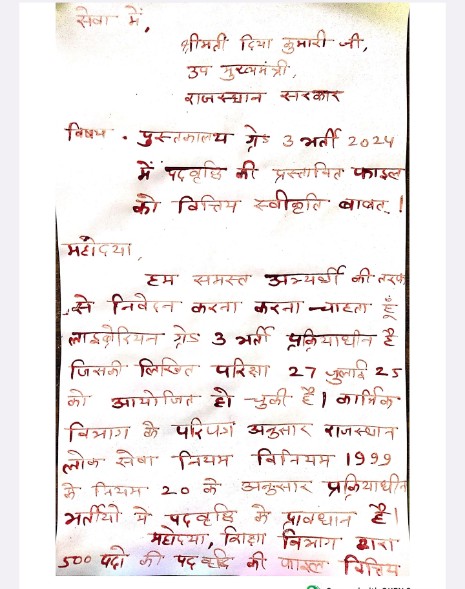 सेवा में,
श्रीमती दिया कुमारी जी,
उप मुख्यमंत्री,
राजस्थान सरकार
विषय . पुस्तकालय ग्रेड 3 भर्ती 2024
में पदवृद्धि की प्रस्तावित फाइल
को वित्तिय स्वीकृति बाबत् ।
महोदया,
हम समस्त अभ्यर्थी की तरफ
से निवेदन करना करना चाहता हूँ
लाइब्रेरियन ग्रेड 3 भर्ती प्रक्रियाधीन है
जिसकी लिखित परिक्षा 27 जुलाई 25
को आयोजित हो चुकी है। कार्मिक
विभाग के परिपत्र अनुसार राजस्थान
लोक सेवा नियम विनियम 1999
के नियम 20 के अनुसार प्रक्रियाधीन
भर्तीयो मे पदवृद्धि के प्रावधान है।
महोदया, शिक्षा विभाग द्वारा
500 पदो की पदवृद्धि की फाइल वित्तिय